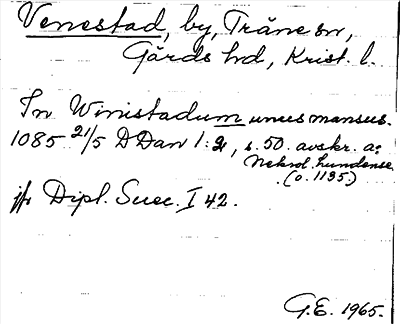 Venestad, by, Träne sn,
Gärds hd, Krist. l.
In Winistadum unus mansus.
1085 21/5 DDan 1:2, s. 50. avskr. a:
Nekrol. Lundense
(o. 1135)
jfr Dipl. Suec. I 42.
G.E. 1965.